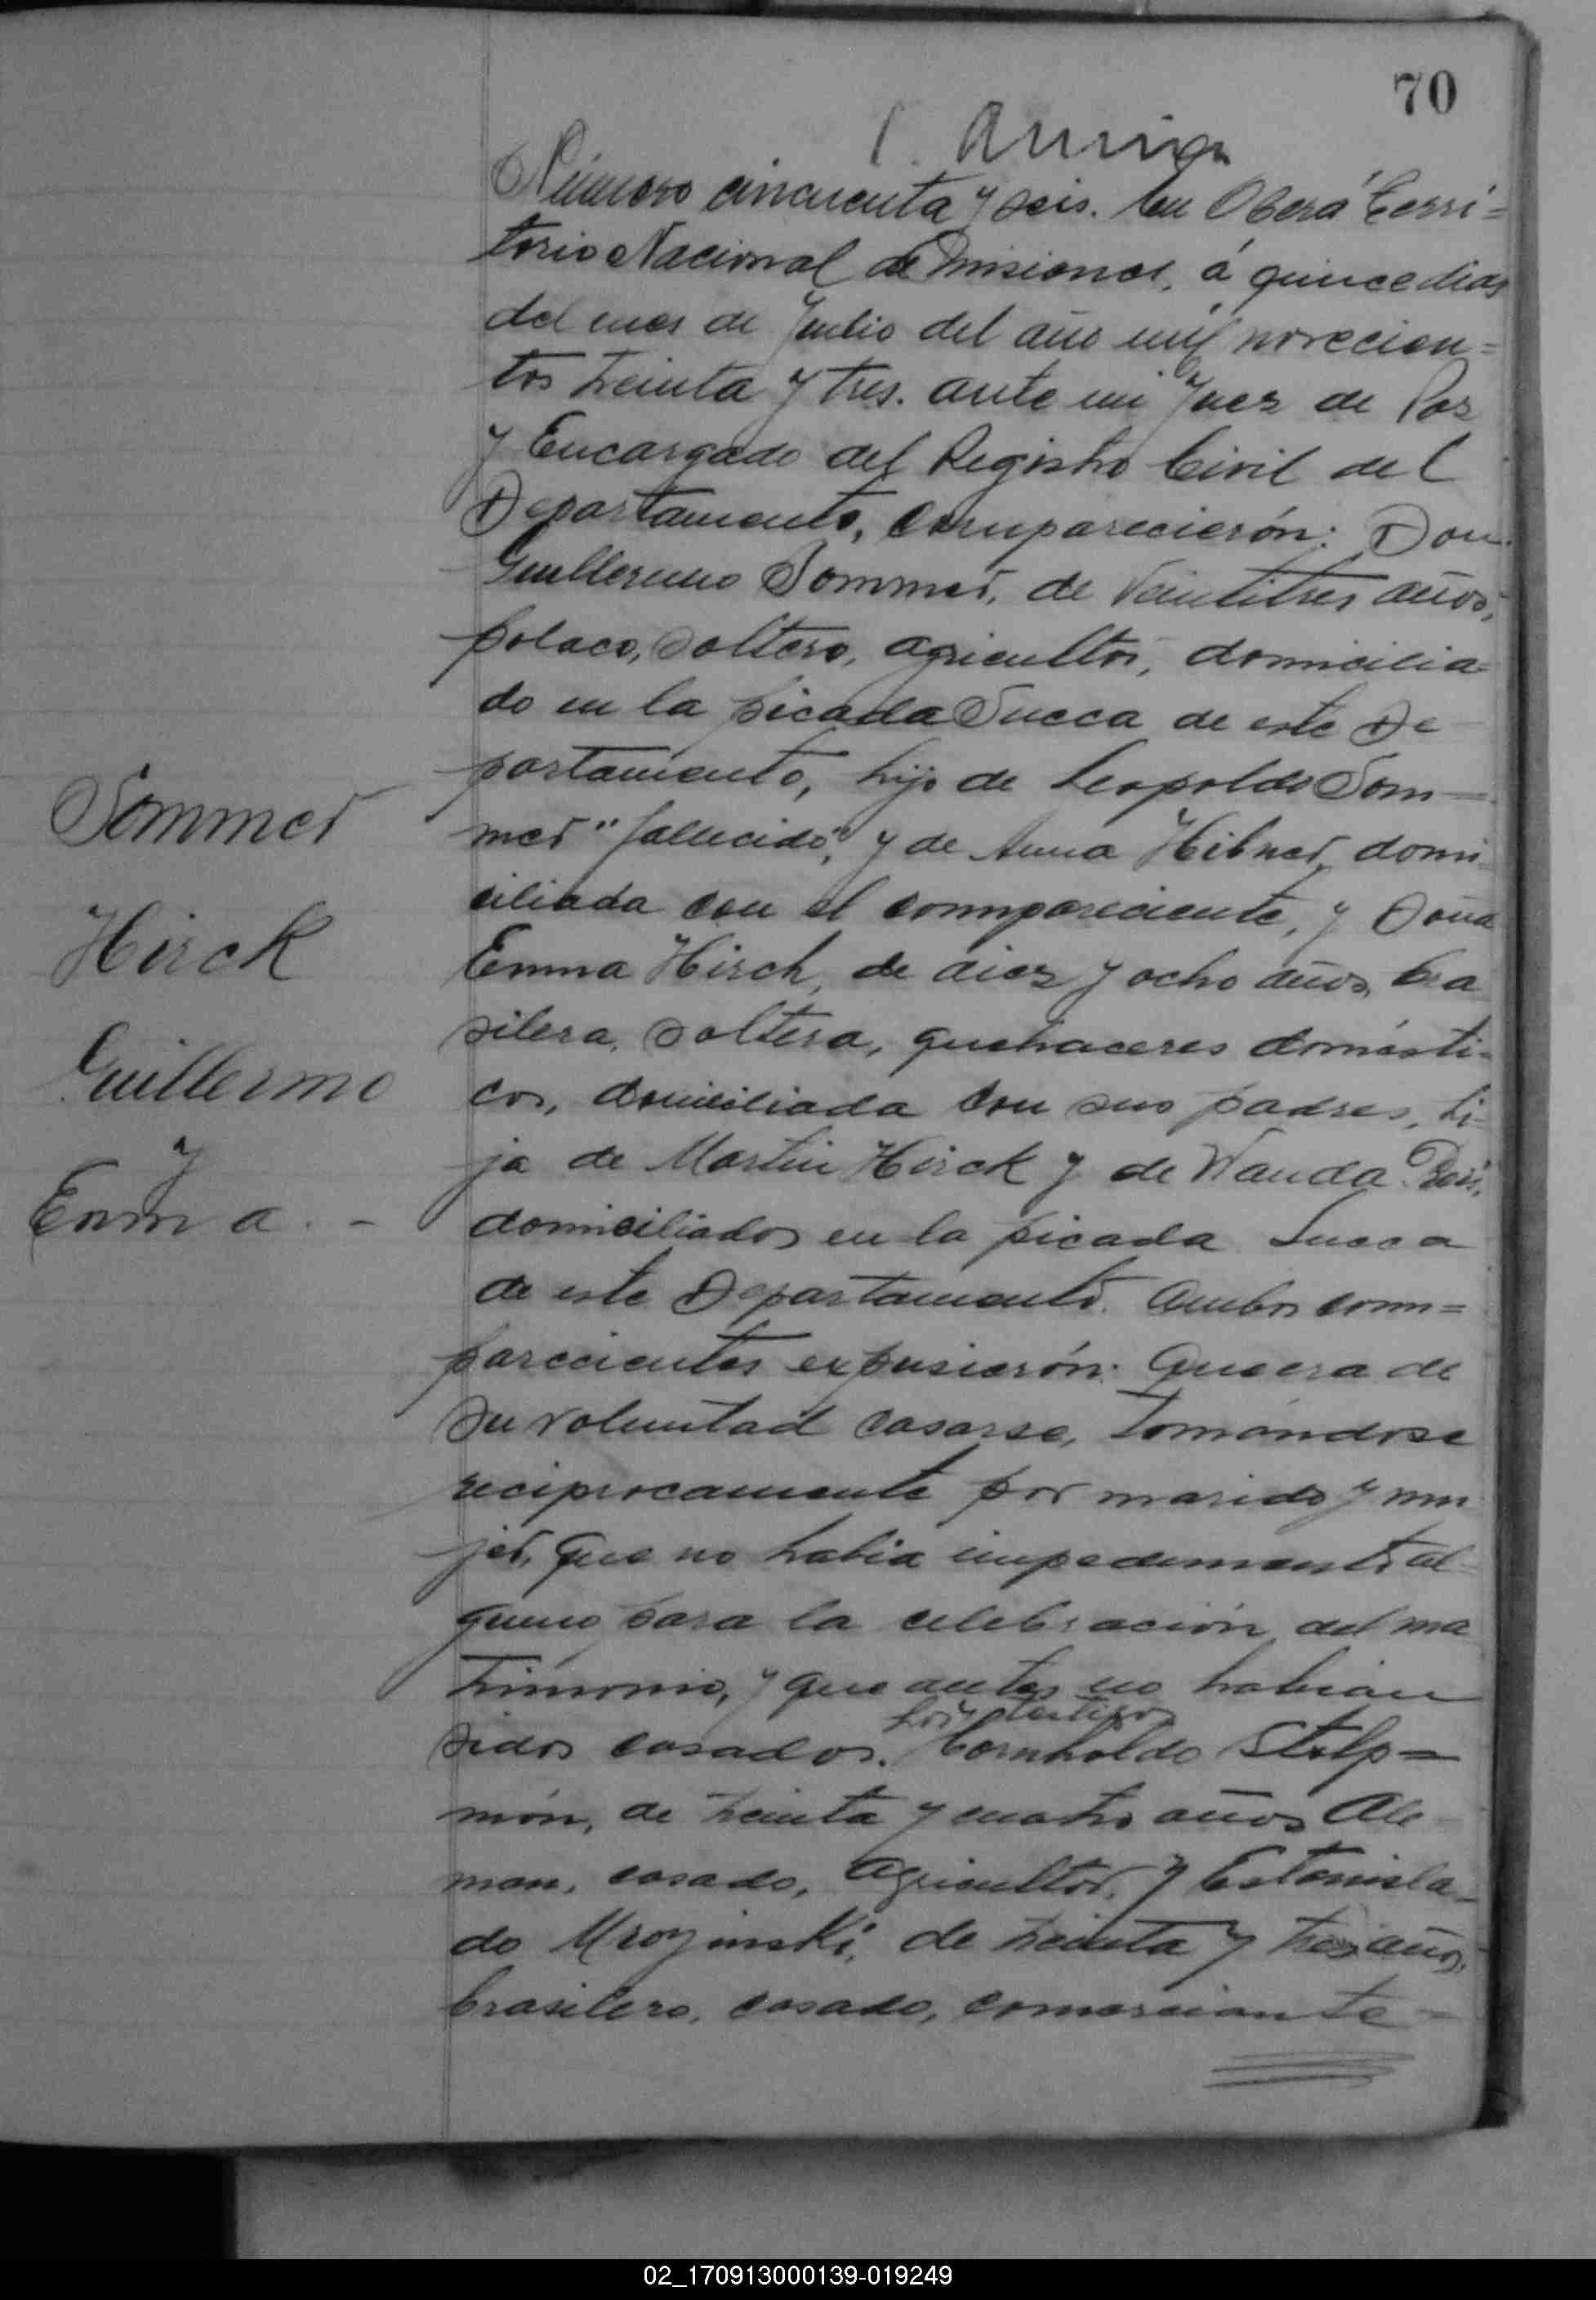 70
Número cincuenta y seis. En Oberá Terri=
torio Nacional de Misiones, á quince dias
del mes de Julio del año mil novecien=
tos treinta y tres. ante mi Juez de Paz
y Encargado del Registro Civil del
Departamento, comparecierón: Don
Guillermo Sommer, de veintitres años,
polaco, soltero, agricultor, domicilia-
do en la picada Sueca de este De
partamento, hijo de Leopoldo Som-
mer "fallecido", y de Anna Hibner, domi
ciliada con el compareciente, y Doña
Emma Hirch, de diez y ocho años, bra
silera, soltera, quehaceres domésti-
cos, domiciliada con sus padres, hi-
ja de Martin Hirck y de Wanda
domiciliados en la picada Sueca
de este Departamento. Ambos com=
parecientes expusierón: Que era de
su voluntad casarse, tomándose
reciprocamente por marido y mu
jer, que no habia impedimento al-
guno para la celebración del ma
trimonio, y que antes no habian
sidos casados. Los testigos Cornholdo Stelp=
món, de treinta y cuatro años Ale
man, casado, agricultor, y Estanisla-
do Mrozinski, de treinta y tres años,
brasilero, casado, comerciante-
Sommer
Hirck
Guillermo
y
Emma.-
02_170913000139-019249